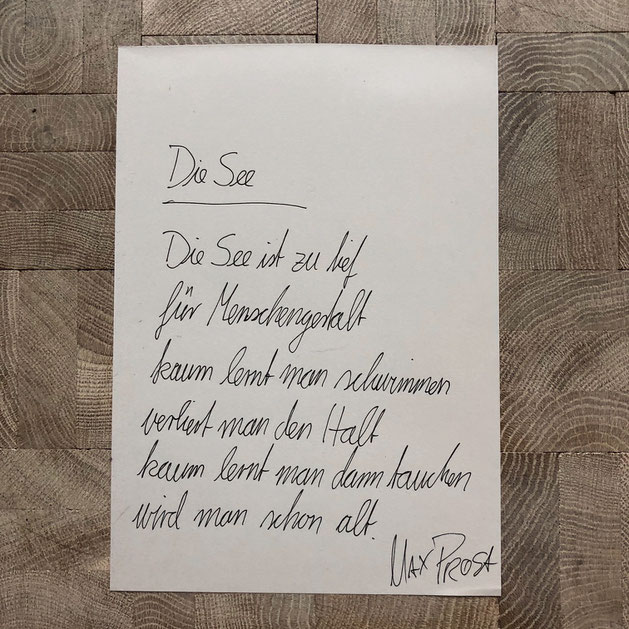 Die See
Die See ist zu tief
für Menschengestalt
kaum lernt man schwimmen
verliert man den Halt
kaum lernt man dann tauchen
wird man schon alt.
MAX PROST